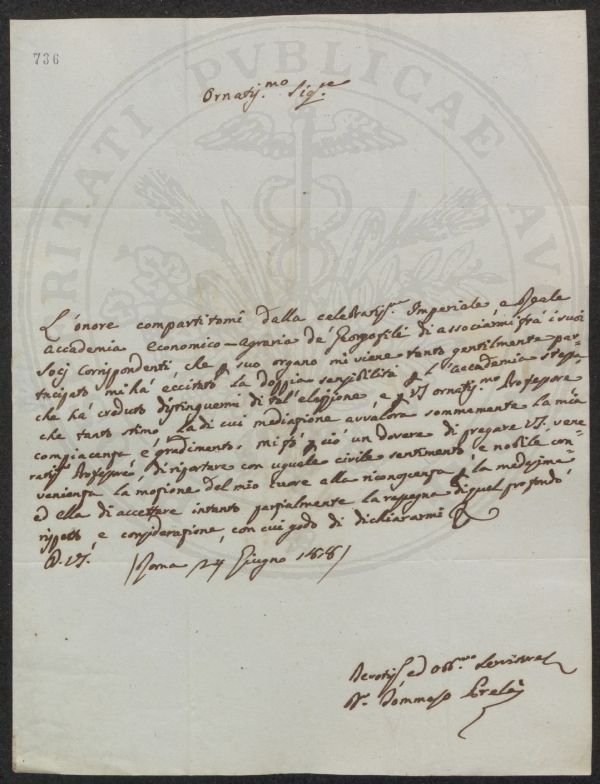 736
Ornatiss.mo Sig.re
L'onore compartitomi dalla celebratiss.a Imperiale, e Reale
accademia economico-agraria de' Georgofili di associarmi frà i suoi
Socj Corrispondenti, che p suo organo mi viene tanto gentilmente par-
tecipato mi hà eccitato la doppia sensibilità p l'accademia stessa
che hà creduto distinguermi di tal'elezzione, e p VS ornatiss.mo Professore
che tanto stimo, la di cui mediazione avvalora sommamente la mia
compiacenza e gradimento. mi fò p ciò un dovere di pregare VS. vene
ratiss.o Professore, di riportare con uguale civile sentimento e nobile con-
venienza la mozione del mio cuore alla riconoscenza p la medesima
ed ella di accettare intanto parzialmente la rassegna di quel profondo
rispetto, e considerazione, con cui godo di dichiararmi
D. VS.
Roma 24 Giugno 1818
Devotiss. ed Obb.mo Servitore
Dr. Tommaso Prelà
PUBLICAE